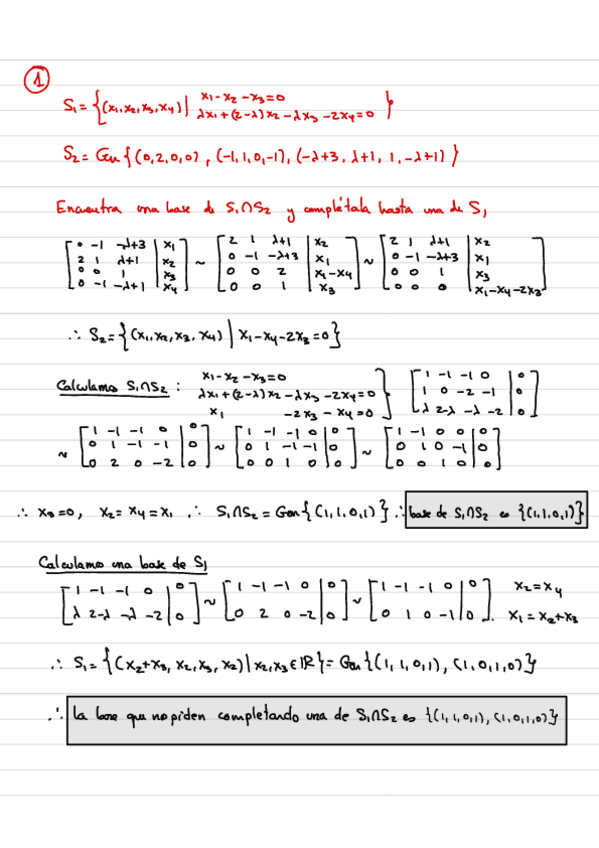 1
S₁ = {(x₁,x₂,x₃,x₄) | x₁-x₂-x₃=0
λx₁+(2-λ)x₂-λx₃-2x₄=0 }
S₂ = Gen{(0,2,0,0), (-1,1,0,-1), (-λ+3, λ+1, 1, -λ+1)}
Encuentra una base de S₁∩S₂ y complétala hasta una de S₁
[0 -1 -λ+3 | x₁; 2 1 λ+1 | x₂; 0 0 1 | x₃; 0 -1 -λ+1 | x₄] ~ [2 1 λ+1 | x₂; 0 -1 -λ+3 | x₁; 0 0 2 | x₁-x₄; 0 0 1 | x₃] ~ [2 1 λ+1 | x₂; 0 -1 -λ+3 | x₁; 0 0 1 | x₃; 0 0 0 | x₁-x₄-2x₃]
∴ S₂ = {(x₁,x₂,x₃,x₄) | x₁-x₄-2x₃=0}
Calculamos S₁∩S₂ : x₁-x₂-x₃=0
λx₁+(2-λ)x₂-λx₃-2x₄=0
x₁ -2x₃-x₄=0 } [1 -1 -1 0 | 0; 1 0 -2 -1 | 0; λ 2-λ -λ -2 | 0]
~ [1 -1 -1 0 | 0; 0 1 -1 -1 | 0; 0 2 0 -2 | 0] ~ [1 -1 -1 0 | 0; 0 1 -1 -1 | 0; 0 0 1 0 | 0] ~ [1 -1 0 0 | 0; 0 1 0 -1 | 0; 0 0 1 0 | 0]
∴ x₃=0, x₂=x₄=x₁ ∴ S₁∩S₂ = Gen{(1,1,0,1)} ∴ base de S₁∩S₂ es {(1,1,0,1)}
Calculamos una base de S₁
[1 -1 -1 0 | 0; λ 2-λ -λ -2 | 0] ~ [1 -1 -1 0 | 0; 0 2 0 -2 | 0] ~ [1 -1 -1 0 | 0; 0 1 0 -1 | 0] x₂=x₄
x₁=x₂+x₃
∴ S₁ = {(x₂+x₃, x₂, x₃, x₂) | x₂,x₃∈ℝ} = Gen{(1,1,0,1), (1,0,1,0)}
∴ la base que nos piden completando una de S₁∩S₂ es {(1,1,0,1), (1,0,1,0)}